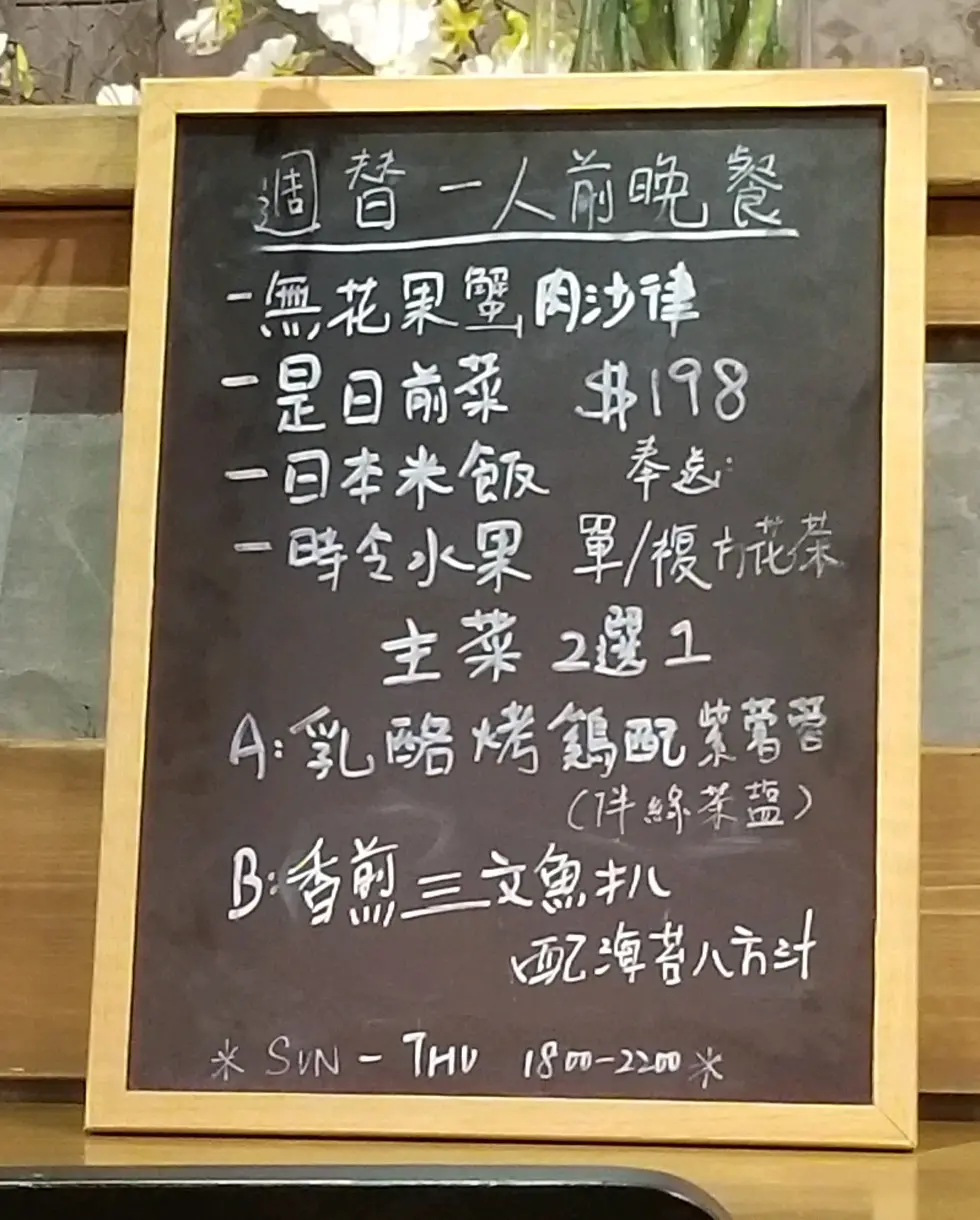 週替一人前晚餐
-無花果蟹肉沙律
-是日前菜 $198
-日本米飯 奉送:
-時令水果 單/複方花茶
主菜 2選1
A:乳酪烤鷄配紫薯蓉
(伴綠茶盐)
B:香煎三文魚扒
配海苔八方汁
* SUN - THU 1800-2200 *